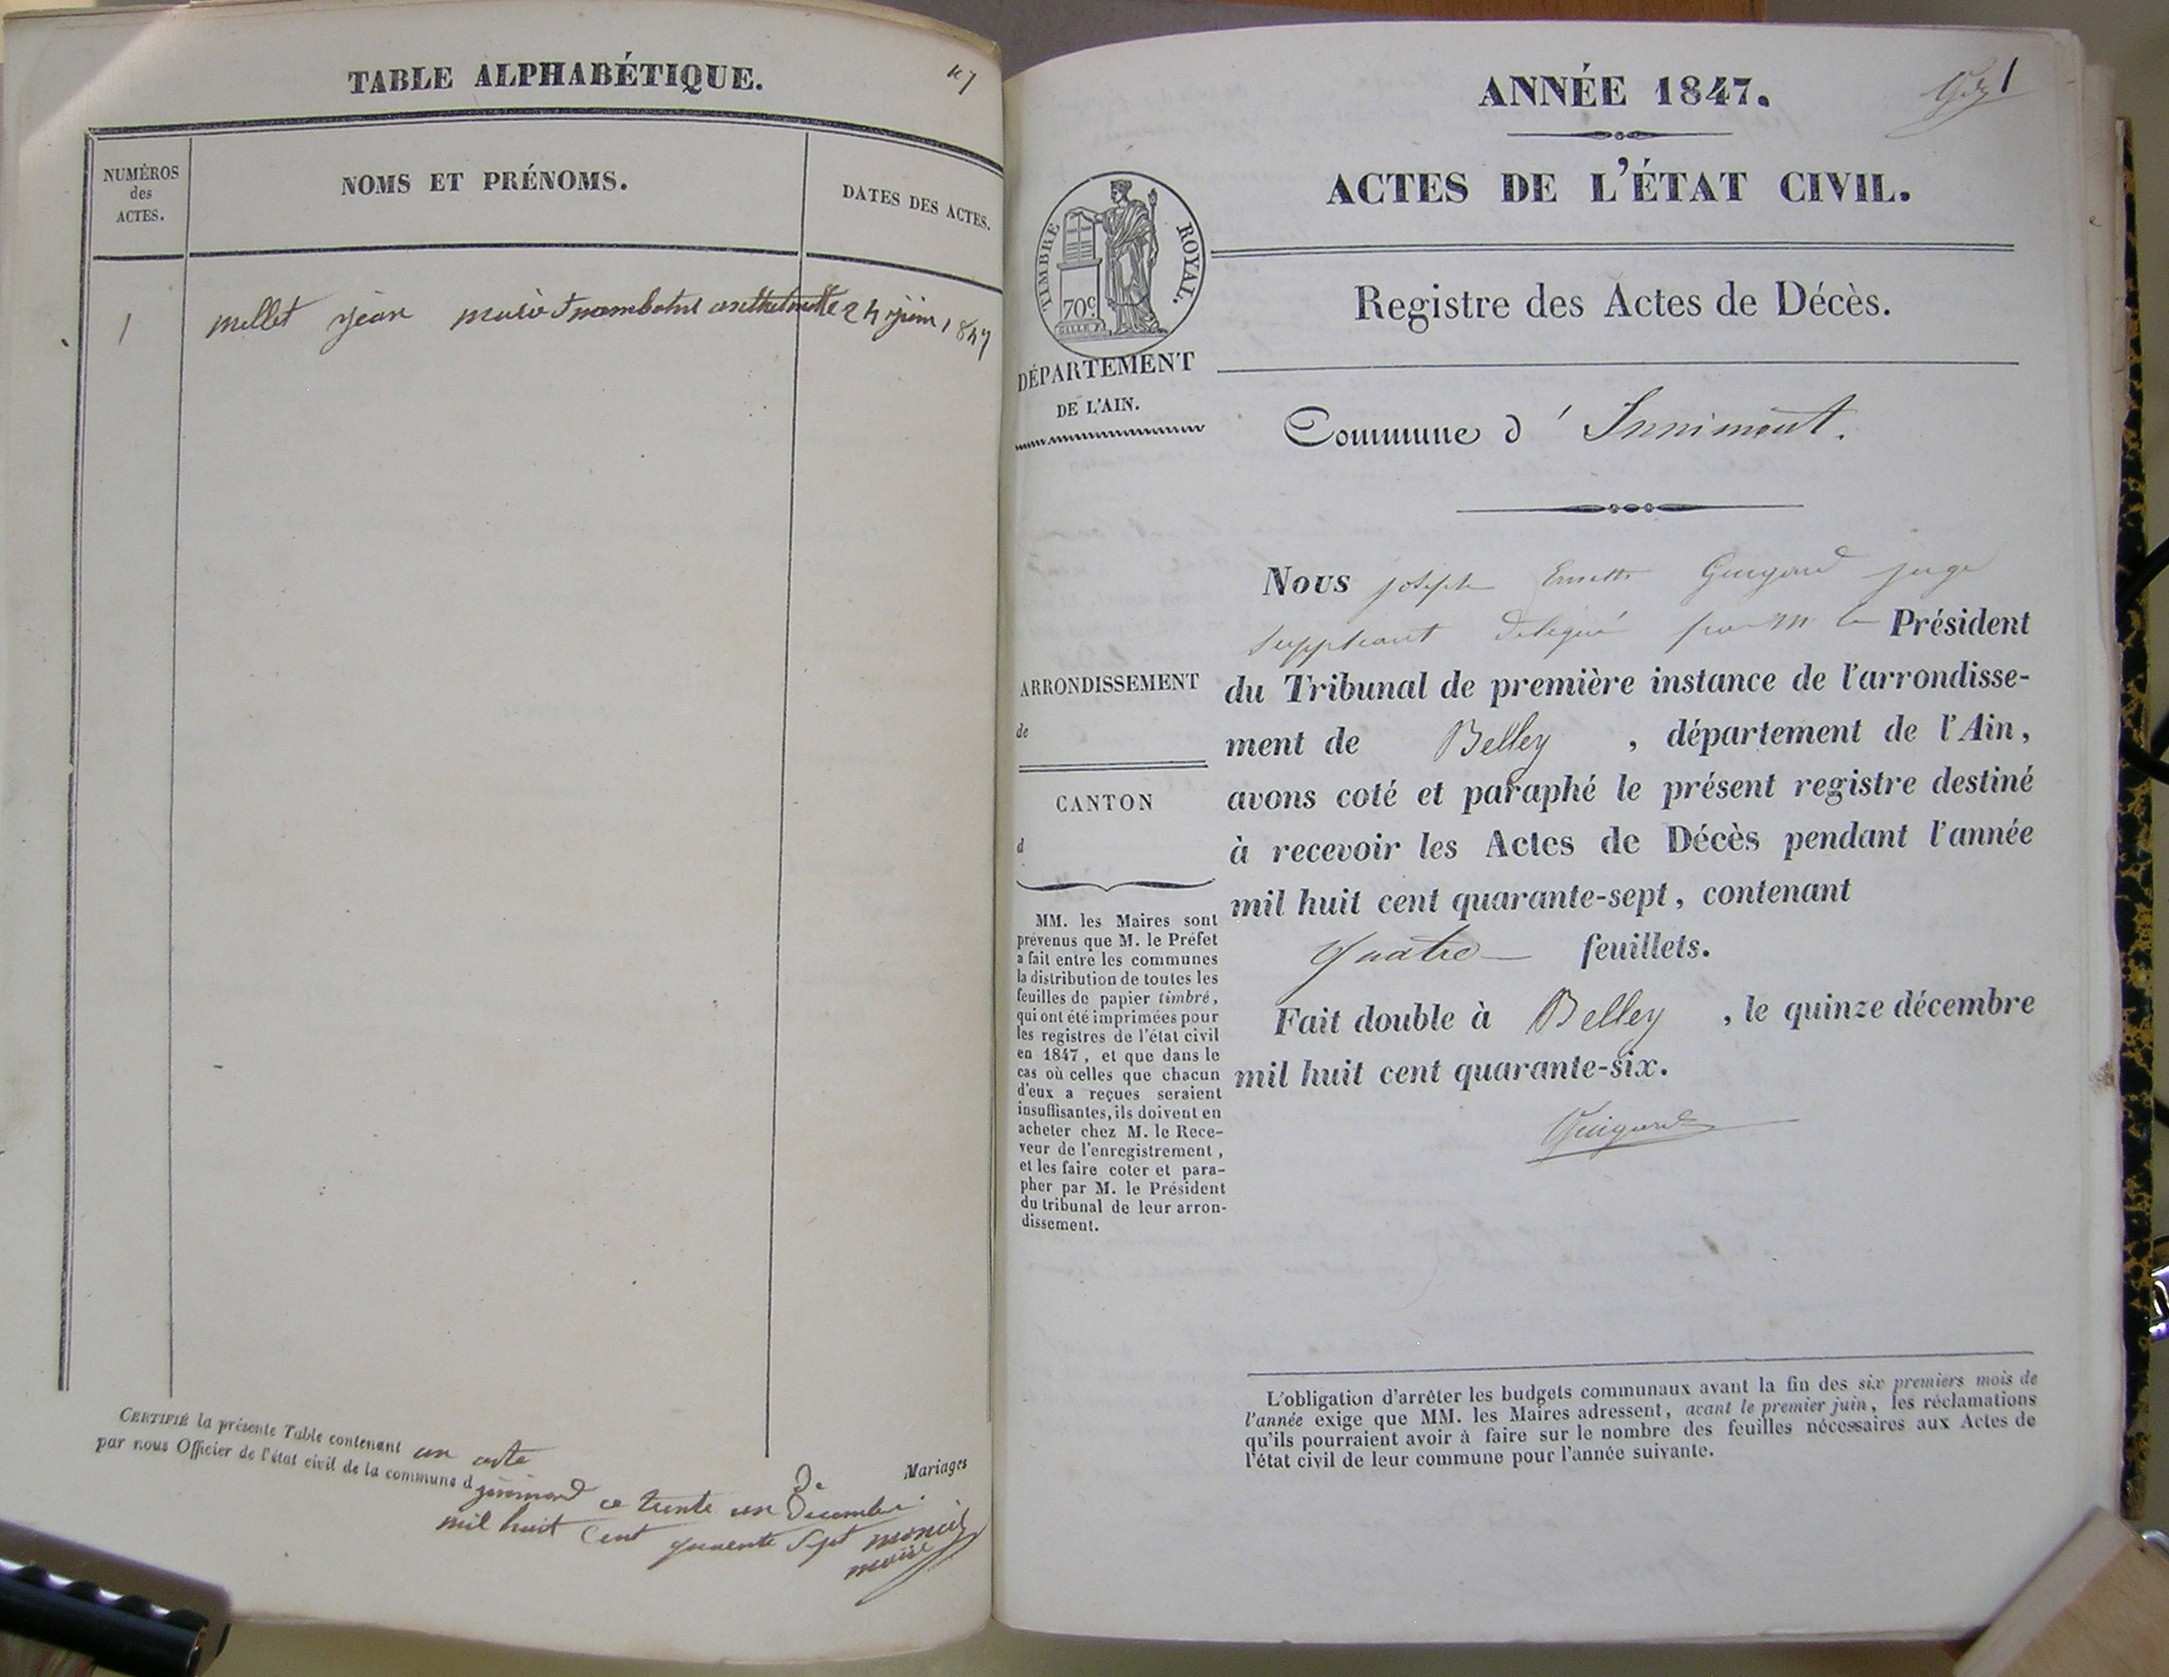 TABLE ALPHABÉTIQUE.
NUMÉROS
des
ACTES.
NOMS ET PRÉNOMS.
DATES DES ACTES.
1 mellet jean marie 24 juin 1847
CERTIFIÉ la présente Table contenant un acte
par nous Officier de l'état civil de la commune d
ce trente un Decembre
mil huit Cent quarente Sept
De Mariages
ANNÉE 1847.
1
ACTES DE L'ÉTAT CIVIL.
TIMBRE ROYAL.
70c
Registre des Actes de Décès.
DÉPARTEMENT
DE L'AIN.
Commune d'Innimont.
Nous joseph Guigard juge
suppleant délégué par M le Président
du Tribunal de première instance de l'arrondisse-
ment de Belley, département de l'Ain,
avons coté et paraphé le présent registre destiné
à recevoir les Actes de Décès pendant l'année
mil huit cent quarante-sept, contenant
quatre feuillets.
Fait double à Belley, le quinze décembre
mil huit cent quarante-six.
Guigard
ARRONDISSEMENT
de
CANTON
d
MM. les Maires sont
prévenus que M. le Préfet
a fait entre les communes
la distribution de toutes les
feuilles de papier timbré,
qui ont été imprimées pour
les registres de l'état civil
en 1847, et que dans le
cas où celles que chacun
d'eux a reçues seraient
insuffisantes, ils doivent en
acheter chez M. le Rece-
veur de l'enregistrement,
et les faire coter et para-
pher par M. le Président
du tribunal de leur arron-
dissement.
L'obligation d'arrêter les budgets communaux avant la fin des six premiers mois de
l'année exige que MM. les Maires adressent, avant le premier juin, les réclamations
qu'ils pourraient avoir à faire sur le nombre des feuilles nécessaires aux Actes de
l'état civil de leur commune pour l'année suivante.